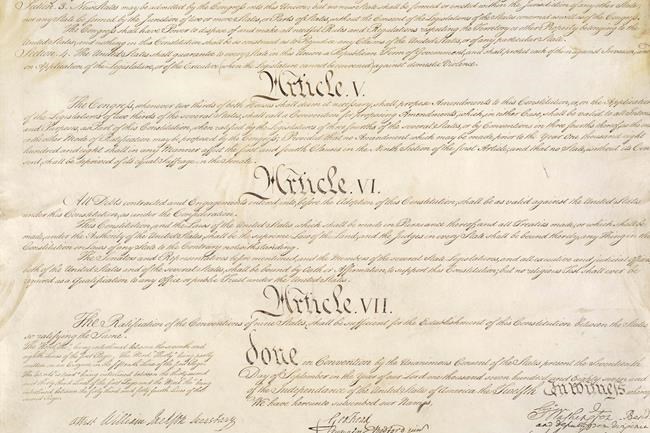 Section. 3. New States may be admitted by the Congress into this Union; but no new State shall be formed or erected within the Jurisdiction of any other State;
nor any State be formed by the Junction of two or more States, or Parts of States, without the Consent of the Legislatures of the States concerned as well as of the Congress.
The Congress shall have Power to dispose of and make all needful Rules and Regulations respecting the Territory or other Property belonging to the
United States; and nothing in this Constitution shall be so construed as to Prejudice any Claims of the United States, or of any particular State.
Section. 4. The United States shall guarantee to every State in this Union a Republican Form of Government, and shall protect each of them against Invasion; and
on Application of the Legislature, or of the Executive (when the Legislature cannot be convened) against domestic Violence.
Article. V.
The Congress, whenever two thirds of both Houses shall deem it necessary, shall propose Amendments to this Constitution, or, on the Application
of the Legislatures of two thirds of the several States, shall call a Convention for proposing Amendments, which, in either Case, shall be valid to all Intents
and Purposes, as Part of this Constitution, when ratified by the Legislatures of three fourths of the several States, or by Conventions in three fourths thereof, as the
one or the other Mode of Ratification may be proposed by the Congress; Provided that no Amendment which may be made prior to the Year One thousand eight
hundred and eight shall in any Manner affect the first and fourth Clauses in the Ninth Section of the first Article; and that no State, without its Con
sent, shall be deprived of its equal Suffrage in the Senate.
Article. VI.
All Debts contracted and Engagements entered into, before the Adoption of this Constitution, shall be as valid against the United States
under this Constitution, as under the Confederation.
This Constitution, and the Laws of the United States which shall be made in Pursuance thereof; and all Treaties made, or which shall be
made, under the Authority of the United States, shall be the supreme Law of the Land; and the Judges in every State shall be bound thereby, any Thing in the
Constitution or Laws of any State to the Contrary notwithstanding.
The Senators and Representatives before mentioned, and the Members of the several State Legislatures, and all executive and judicial Officers,
both of the United States and of the several States, shall be bound by Oath or Affirmation, to support this Constitution; but no religious Test shall ever be
required as a Qualification to any Office or public Trust under the United States.
Article. VII.
The Ratification of the Conventions of nine States, shall be sufficient for the Establishment of this Constitution between the States
so ratifying the Same.
done in Convention by the Unanimous Consent of the States present the Seventeenth
Day of September in the Year of our Lord one thousand seven hundred and Eighty seven and
of the Independance of the United States of America the Twelfth In Witness
We have hereunto subscribed our Names,
Attest William Jackson Secretary
Geo Read
Go Washington
and deputy from Virginia